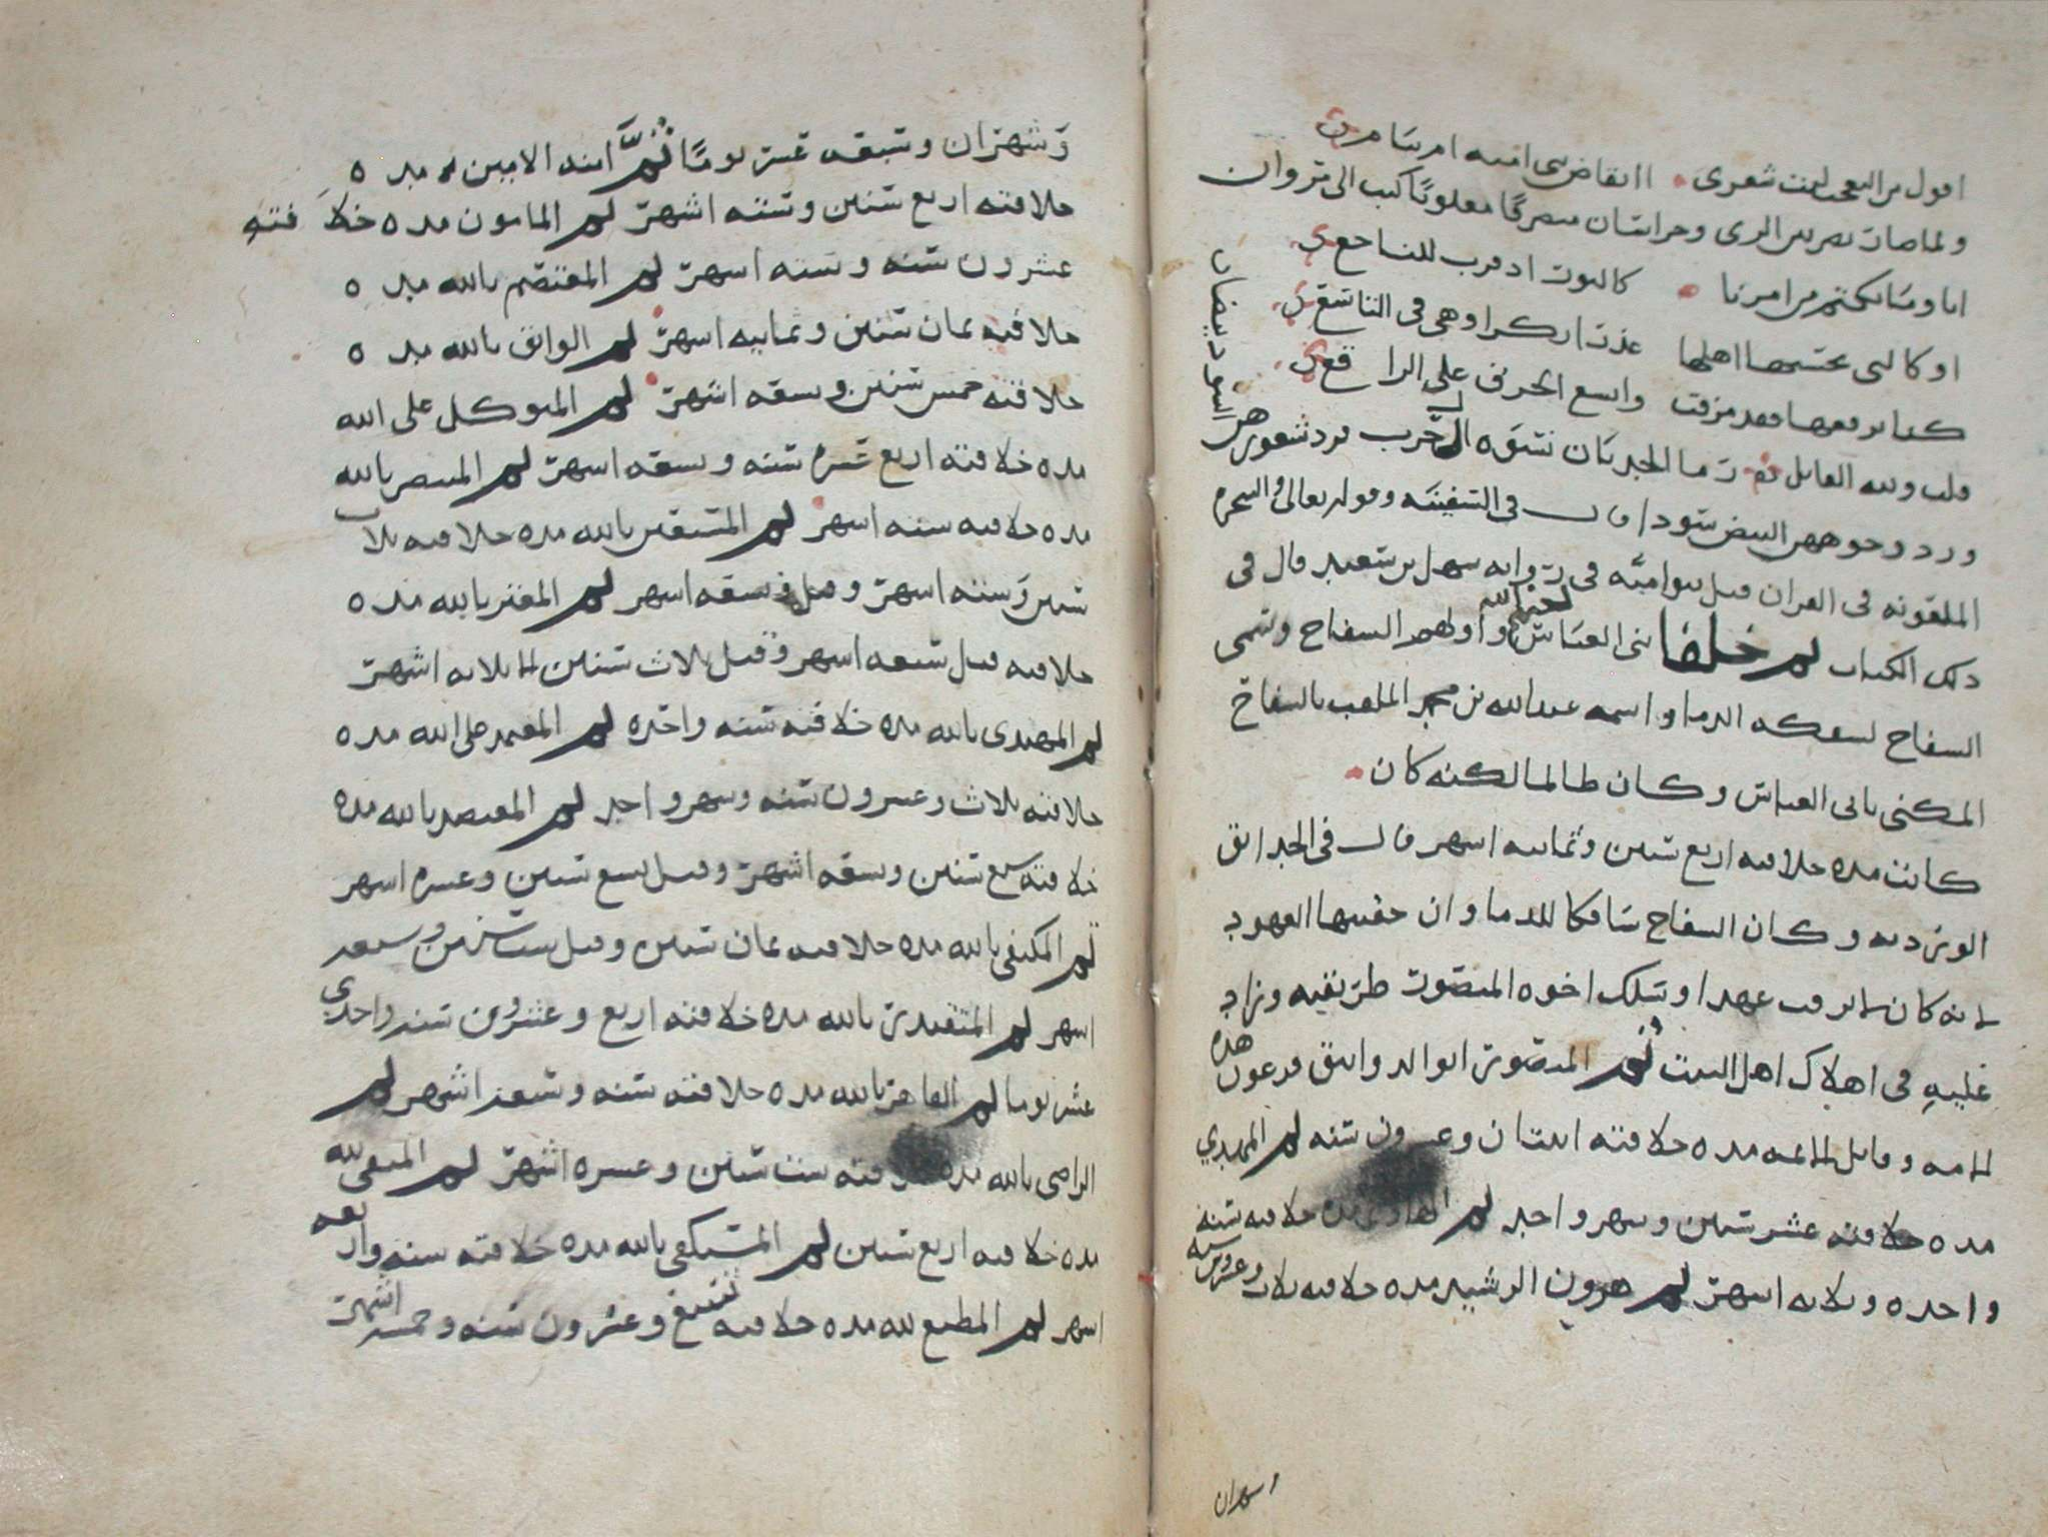 اقول من التعجب ليت شعري ااىقاض بني اميه ام نيام
ولما صار نصر بين الري وخراسان كتب الى مروان
انا وما نكتم من امرنا كالثور اذ قرب للناخع
او كالتي يحسبها اهلها عذرا بكرا وهي في التاسع
كنا نرفيها فقد مزقت واتسع الخرق على الراقع
قلت ولله القايل رما الحدثان نسوة ال حرب فرد شعورهن السود بيضا
ورد وجوههن البيض سودا قال في السفينه وقوله تعالى والشجره
الملعونه في القران قيل بنو اميه في روايه سهل بن سعيد قال في
ذلك الكتاب ثم خلفا بني العباس لعنهم الله واولهم السفاح وسمي
السفاح لسفكه الدما واسمه عبد الله بن محمد الملقب بالسفاح
المكنى بابي العباس وكان ظالما لكنه كان
كانت مده خلافته اربع سنين وثمانيه اشهر قال في الحدايق
الورديه وكان السفاح سافكا للدما وان حقيبها العهود
لانه كان لا يرقب عهدا وسلك اخوه المنصور طريقته وزاد
عليه في اهلاك اهل البيت ثم المنصور ابو الدوانيق فرعون هذه
الامه وقاتل الايمه مده خلافته اثنتان وعشرون سنه ثم المهدي
مده خلافته عشر سنين وشهر واحد ثم الهادي مده خلافته سنه
واحده وثلاثه اشهر ثم هرون الرشيد مده خلافته ثلاث وعشرين سنه
وشهران
وشهران وسبعه عشر يومًا ثم ابنه الامين مده
خلافته اربع سنين وسته اشهر ثم المامون مده خلافته
عشرون سنه وسته اشهر ثم المعتصم بالله مده
خلافته ثمان سنين وثمانيه اشهر ثم الواثق بالله مده
خلافته خمس سنين وسبعه اشهر ثم المتوكل على الله
مده خلافته اربع عشره سنه وسبعه اشهر ثم المنتصر بالله
مده خلافته سته اشهر ثم المستعين بالله مده خلافته ثلاث
سنين وسته اشهر وقيل وسبعه اشهر ثم المعتز بالله مده
خلافته قيل سبعه اشهر وقيل ثلاث سنين الا ثلاثه اشهر
ثم المهتدي بالله مده خلافته سنه واحده ثم المعتمد على الله مده
خلافته ثلاث وعشرون سنه وشهر واحد ثم المعتضد بالله مده
خلافته سبع سنين وسبعه اشهر وقيل تسع سنين وعشره اشهر
ثم المكتفي بالله مده خلافته ثمان سنين وقيل ست سنين وسبعه
اشهر ثم المقتدر بالله مده خلافته اربع وعشرون سنه واحدى
عشر يوما ثم القاهر بالله مده خلافته سنه وسبعه اشهر ثم
الراضي بالله مده خلافته ست سنين وعشره اشهر ثم المتقي لله
مده خلافته اربع سنين ثم المستكفي بالله مده خلافته سنه واربعه
اشهر ثم المطيع لله مده خلافته تسع وعشرون سنه وخمسه اشهر